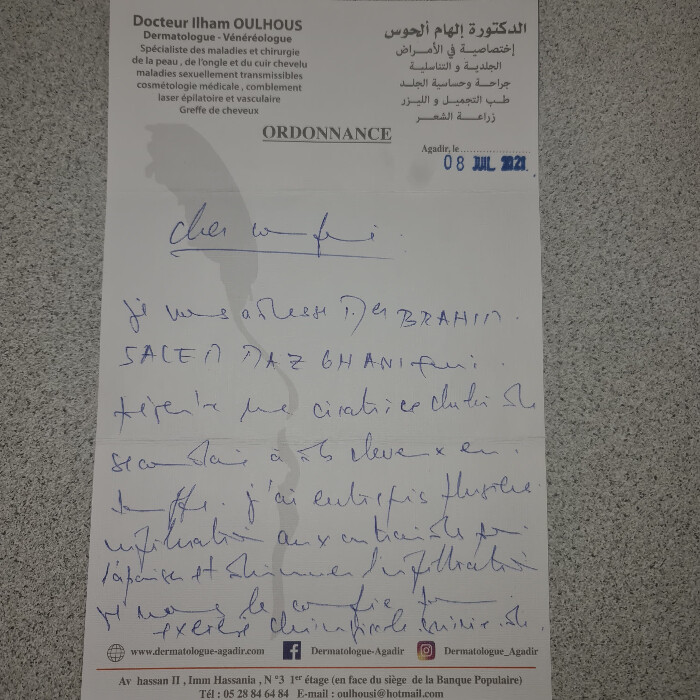 Docteur Ilham OULHOUS
Dermatologue - Vénéréologue
Spécialiste des maladies et chirurgie
de la peau , de l'ongle et du cuir chevelu
maladies sexuellement transmissibles
cosmétologie médicale , comblement
laser épilatoire et vasculaire
Greffe de cheveux
الدكتورة إلهام ألحوس
إختصاصية في الأمراض
الجلدية و التناسلية
جراحة وحساسية الجلد
طب التجميل و الليزر
زراعة الشعر
ORDONNANCE
Agadir, le
08 JUIL 2021
cher confrère
je vous adresse Mr BRAHIM
SALEM MAZ GHANI qui
présente une cicatrice
secondaire à des cheveux en
touffe. j'ai entrepris plusieurs
infiltration aux
et diminuer l'infiltration
je vous le confie pour
exérèse chirurgicale
www.dermatologue-agadir.com Dermatologue-Agadir Dermatologue_Agadir
Av hassan II , Imm Hassania , N °3 1er étage (en face du siège de la Banque Populaire)
Tél : 05 28 84 64 84 E-mail : oulhousi@hotmail.com